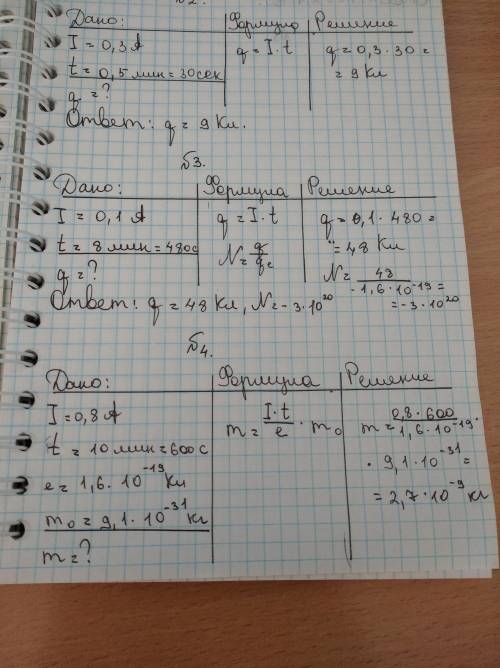 №2.
Дано: Формула Решение
I = 0,3 А q = I · t q = 0,3 · 30 =
t = 0,5 мин = 30 сек = 9 Кл
q = ?
Ответ: q = 9 Кл.
№3.
Дано: Формула Решение
I = 0,1 А q = I · t q = 0,1 · 480 =
t = 8 мин = 480 с N = q/qe = 48 Кл
q = ? N = 48/-1,6 · 10^-19 =
= -3 · 10^20
Ответ: q = 48 Кл, N = -3 · 10^20
№4.
Дано: Формула Решение
I = 0,8 А m = I · t/e · m₀ m = 0,8 · 600/1,6 · 10^-19 ·
t = 10 мин = 600 с · 9,1 · 10^-31 =
e = 1,6 · 10^-19 Кл = 2,7 · 10^-9 кг
m₀ = 9,1 · 10^-31 кг
m = ?